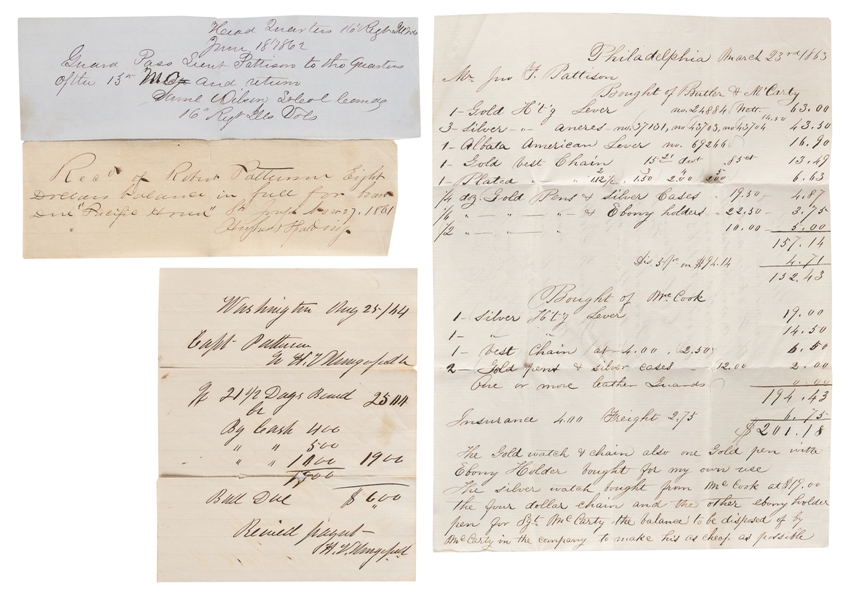 Head Quarters 16" Regt Ills Vols
June 18" 1862
Guard Pass Lieut Pattison to the Quarters
of the 13th and return
Saml Wilson Lt Col Comdg
16" Regt Ills Vols
Recd of Robt Pattison Eight
Dollars balance in full for
due "Pacific House" St Joseph 27, 1861
Washington Aug 25/44
Capt Pattison
To H. V.
To 21 1/2 Days Board 25 00
Cr
By Cash 4 00
" " 5 00
" " 10 00 19 00
19 00
Ball Due $ 6,00
Received payment
H. V.
Philadelphia March 23rd 1863
Mr Jno F. Pattison
Bought of Butler & McCarty
1 - Gold H't'g Lever no. 24884 63.00
3 - Silver - " - ancres - no. 37131, no 43703, no 43704 14.50 43.50
1 - Albata American Lever no. 69266 16.90
1 - Gold Vest Chain 15 21 dwt .85ct 13.49
1 - Plated " 6.63
1/4 dz. Gold Pens & Silver Cases - 19.50 - 4.87
1/6 " - " - " - & Ebony holders - 22.50 - 3.75
1/2 " - " - " - 10.00 - 5.00
157.14
Dis 5% on $94.14 4.71
152.43
Bought of McCook
1 - Silver H't'g Lever 19.00
1 - " 14.50
1 - Vest Chain at - 4.00 . 2.50 6.50
2 - Gold pens & silver cases - 12.00 2.00
One or more leather Guards
194.43
Insurance 4.00 Freight 2.75 6.75
$201.18
The Gold watch & chain also one Gold pen with
Ebony Holder bought for my own use
The silver watch bought from McCook at $19.00
the four dollar chain and the other ebony holder
pen for Sgt. McCarty the balance to be disposed of by
McCarty in the company to make his as cheap as possible